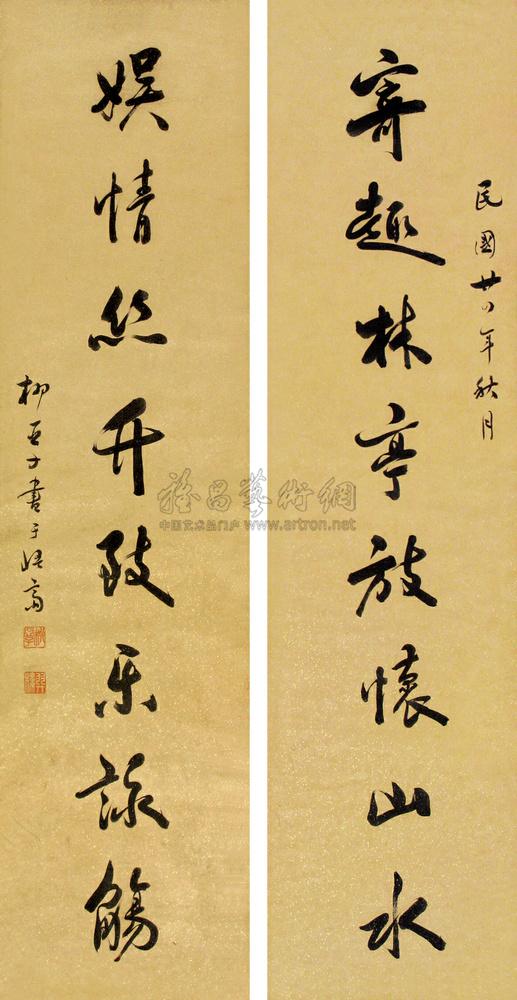 民國廿八年秋月
寄趣林亭放懷山水
娛情絲竹致樂詠觴
柳亚子書于悟齋
雅昌藝術網
中国艺术品门户 www.artron.net